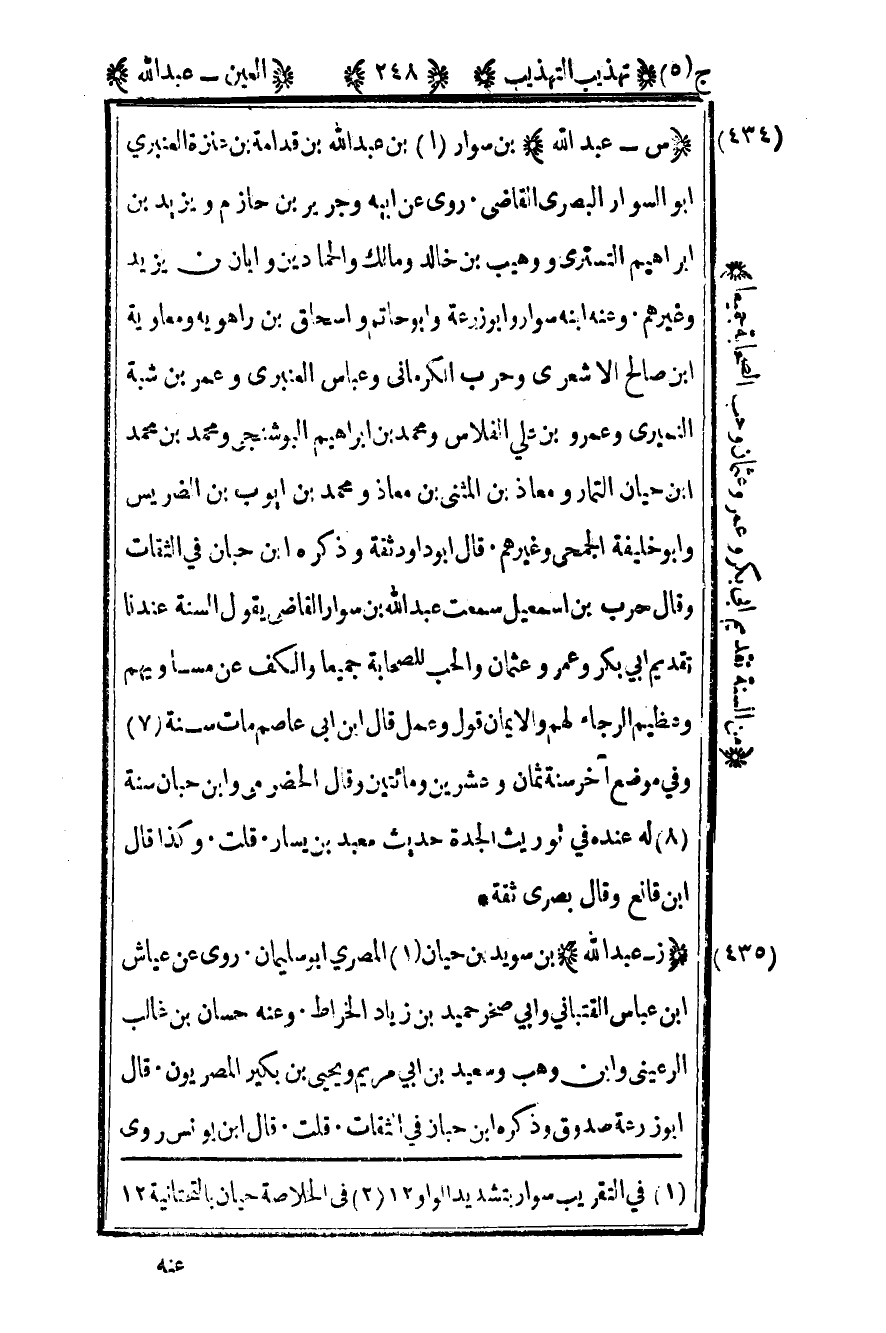 ج(٥) ﴿تهذيب التهذيب﴾ ﴿٢٤٨﴾ ﴿العين ــ عبدالله﴾
(٤٣٤) ﴿س ــ عبد الله﴾ بن سوار (١) بن عبدالله بن قدامة بن عنزة العنبري
ابو السوار البصرى القاضى ٠ روى عن ابيه وجرير بن حازم ويزيد بن
ابراهيم التسترى ووهيب بن خالد ومالك والحمادين وابان بن يزيد
وغيرهم ٠ وعنه ابنه سوار وابوزرعة وابوحاتم واسحاق بن راهويه ومعاوية
ابن صالح الاشعرى وحرب الكرمانى وعباس العنبرى وعمر بن شبة
النميرى وعمرو بن علي الفلاس ومحمد بن ابراهيم البوشنجى ومحمد بن محمد
ابن حيان التمار ومعاذ بن المثنى بن معاذ ومحمد بن ايوب بن الضريس
وابوخليفة الجمحى وغيرهم ٠ قال ابوداود ثقة وذكره ابن حبان في الثقات
وقال حرب بن اسمعيل سمعت عبدالله بن سوار القاضى يقول السنة عندنا
تقديم ابي بكر وعمر وعثمان والحب للصحابة جميعا والكف عن مساويهم
وعظيم الرجاء لهم والايمان قول وعمل قال ابن ابى عاصم مات سنة (٧)
وفي موضع آخر سنة ثمان وعشرين ومائتين وقال الحضرمى وابن حبان سنة
(٨) له عنده في توريث الجدة حديث معبد بن يسار ٠ قلت ٠ وكذا قال
ابن قانع وقال بصرى ثقة *
(٤٣٥) ﴿ز ــ عبدالله﴾ بن سويد بن حيان (١) المصري ابوسليمان ٠ روى عن عياش
ابن عباس القتباني وابي صخر حميد بن زياد الخراط ٠ وعنه حسان بن غالب
الرعينى وابن وهب وسعيد بن ابي مريم ويحيى بن بكير المصريون ٠ قال
ابوزرعة صدوق وذكره ابن حبان في الثقات ٠ قلت ٠ قال ابن يونس روى
(١) في التقريب سوار بتشديد الواو ١٢ (٢) فى الخلاصة حيان بالتحتانية ١٢
عنه
﴿من السنة تقديم ابى بكر وعمر وعثمان وحب الصحابة جميعا﴾